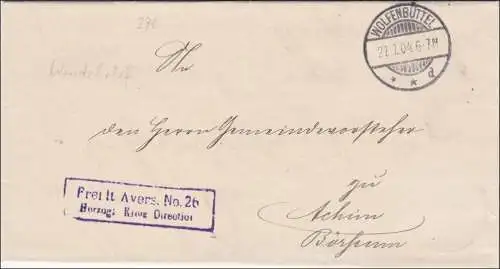 270
WOLFENBÜTTEL
27.1.04.6-7N
* * d
An
den Herrn Gemeindevorsteher
zu
Achim
Börßum
Frei lt Avers. No. 26
Herzogl. Kreis Direction